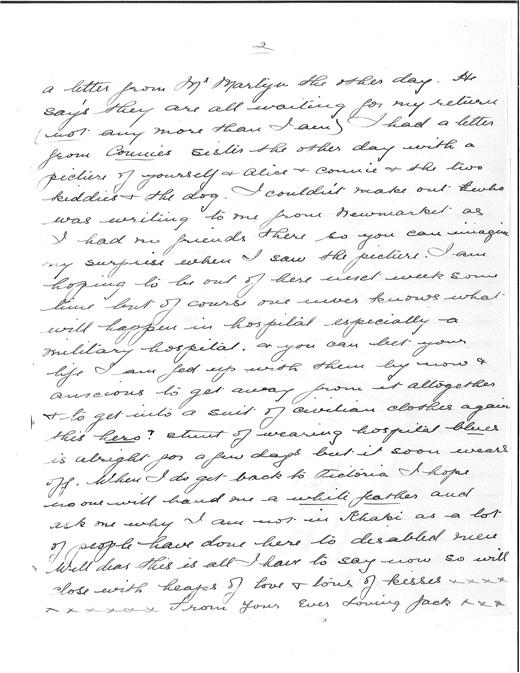 2
a letter from Mr Martyn the other day. He
say's they are all waiting for my return
(not any more than I am) I had a letter
from Connies sister the other day with a
picture of yourself & Alice & Connie & the two
kiddies & the dog. I couldn't make out who
was writing to me from Newmarket as
I had no friends there so you can imagine
my surprise when I saw the picture. I am
hoping to be out of here next week some
time but of course one never knows what
will happen in hospital especially a
military hospital. & you can bet your
life I am fed up with them by now &
anxcious to get away from it altogether
& to get into a suit of civilian clothes again
this hero? stunt of wearing hospital blues
is alright for a few days but it soon wears
off. When I do get back to Victoria I hope
no one will hand me a white feather and
ask me why I am not in Khaki as a lot
of people have done here to disabled men
Well dear this is all I have to say now so will
close with heaps of love & tons of kisses x x x x
x x x x x x From Your Ever Loving Jack x x x